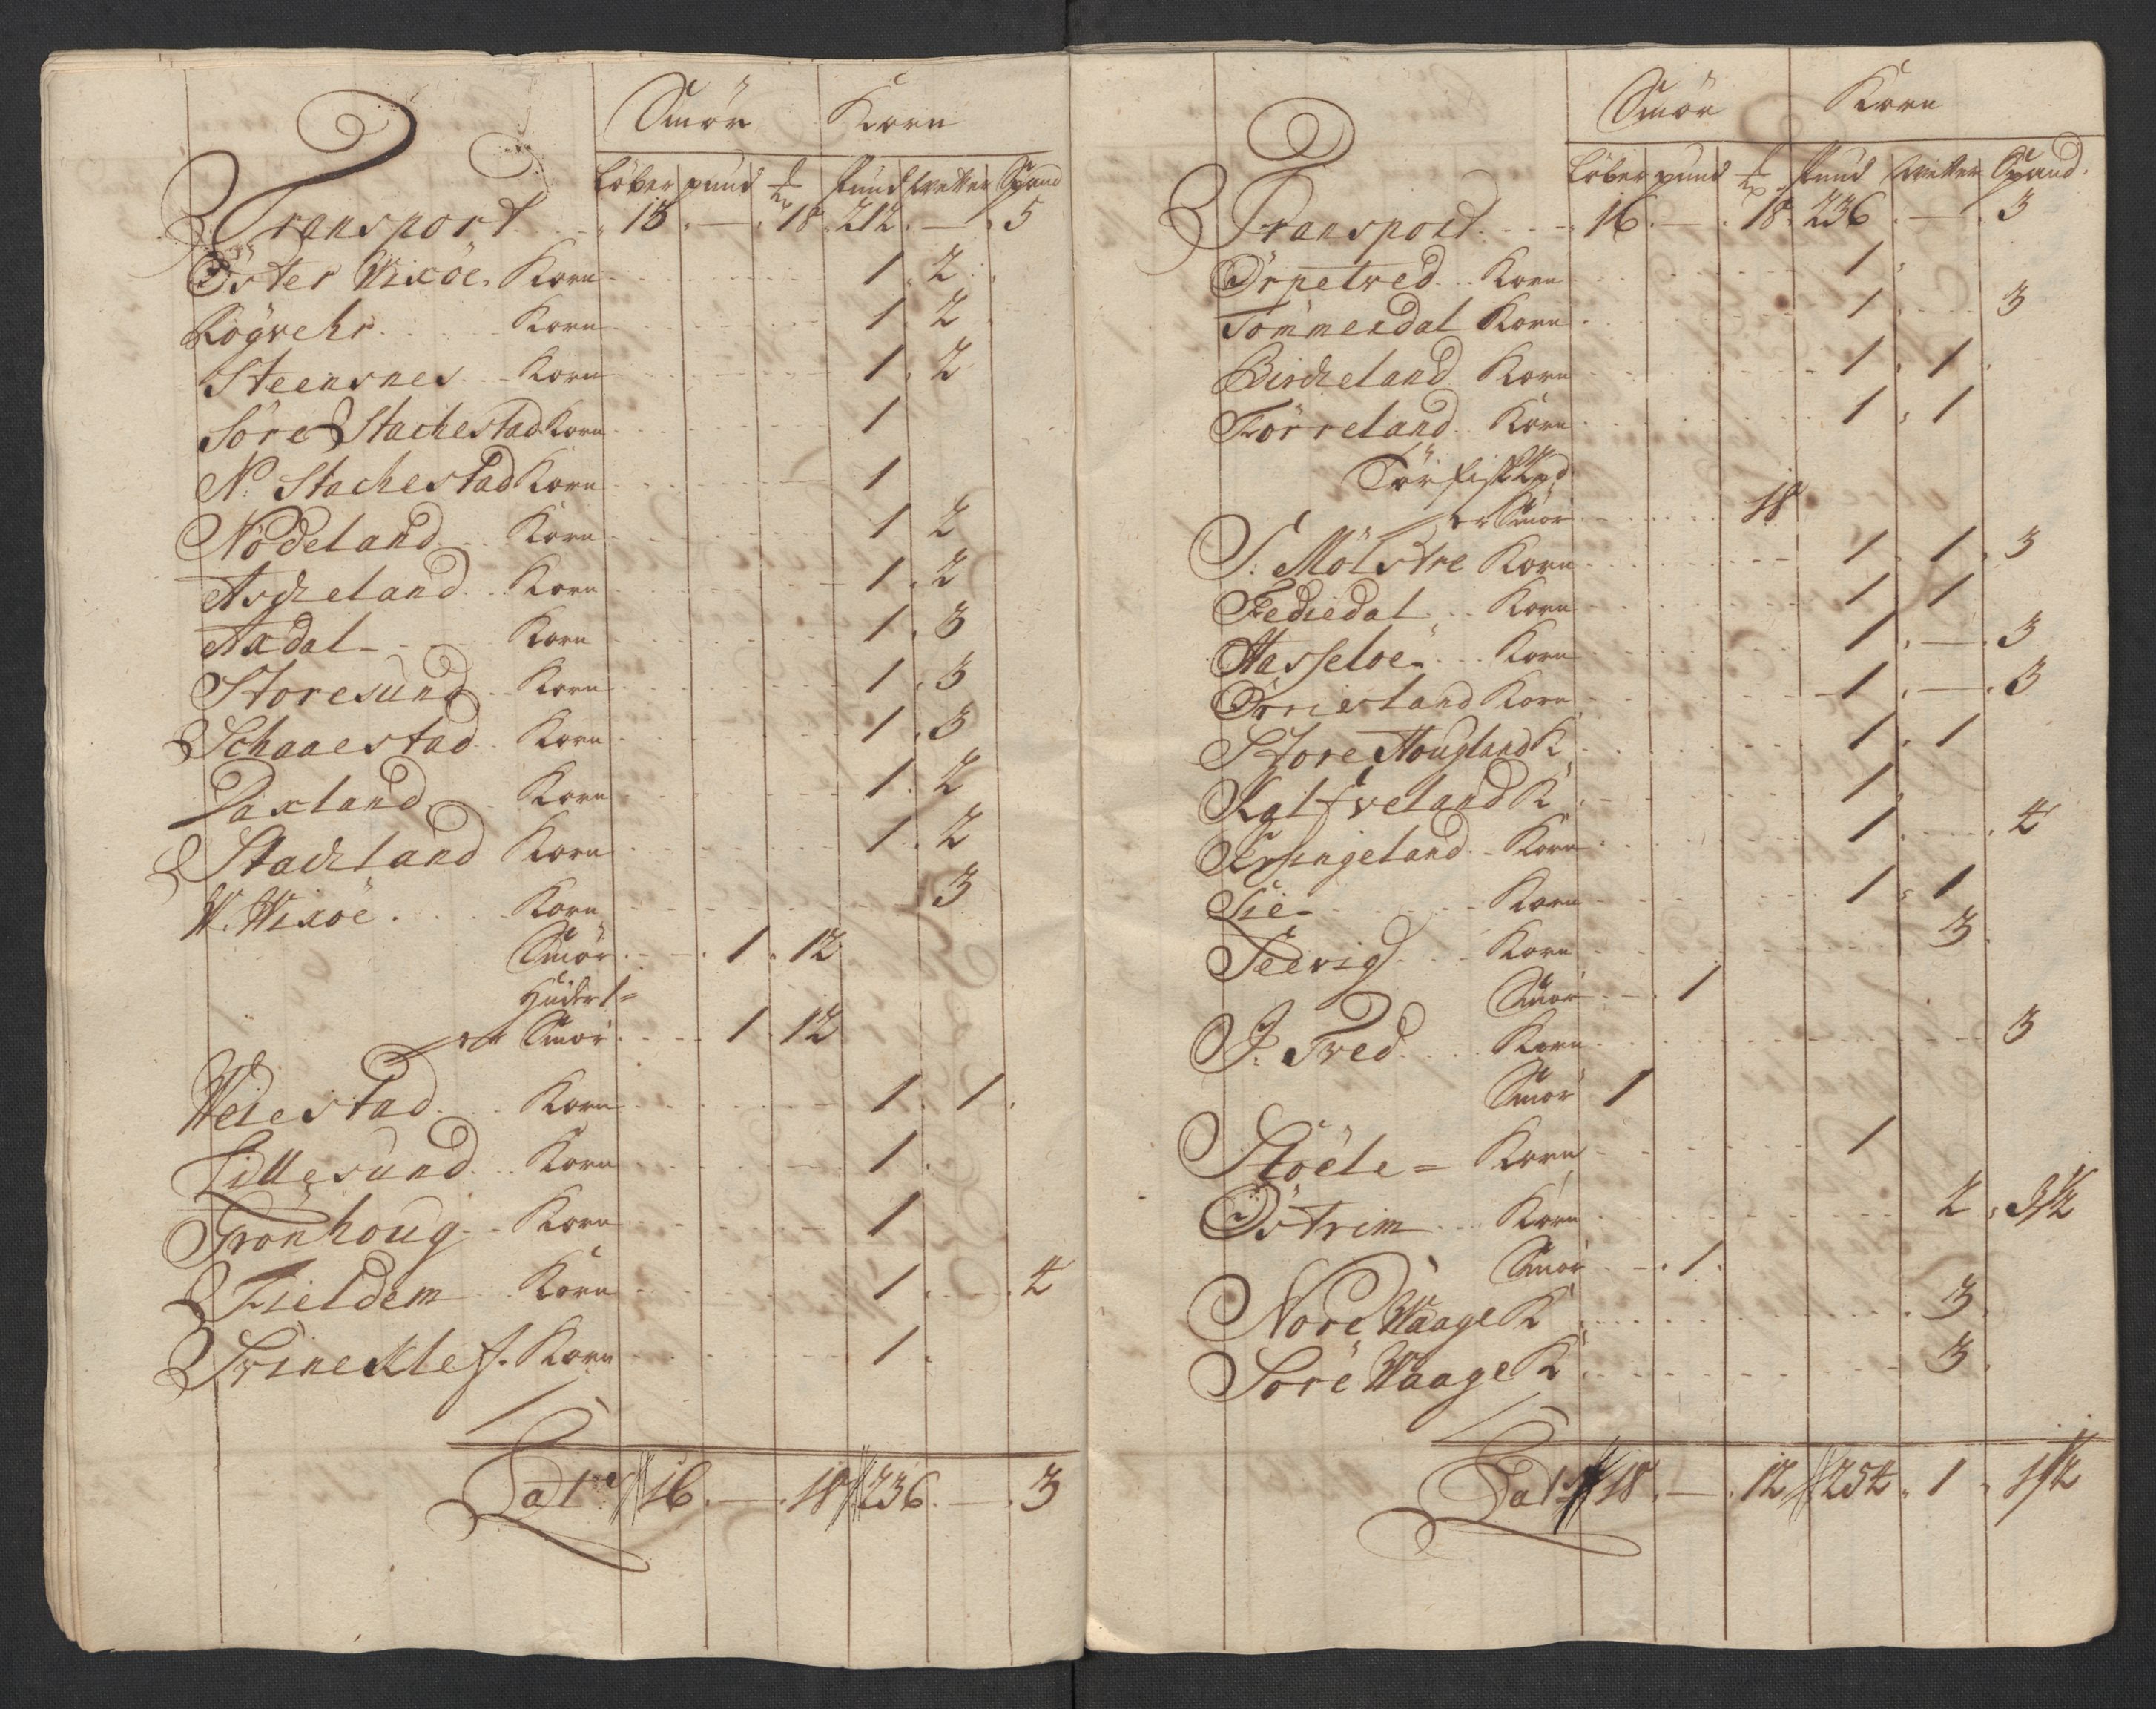 Smör Korn
Löber pund ℔ Pund Vetter Spand
Transport 15 — 18 212 — 5
Öster Wixöe Korn 1 2
Rögvehr Korn 1 2
Steensnes Korn 1 2
Söre Stachestad Korn 1
N: Stachestad Korn 1
Nödeland Korn 1 2
Ascheland Korn 1 2
Axdal Korn 1 3
Storesund Korn 1 3
Schaaestad Korn 1 3
Daxland Korn 1 2
Stachland Korn 1 2
W. Wixöe Korn 3
Smör 1 12
Huder 1 =
er Smör 1 12
Weiestad Korn 1 1
Lillesund Korn 1
Grönhoug Korn 1
Fieldem Korn 1 4
Svineklef Korn 1
Lat:re 16 — 18 236 — 3
Smör Korn
Löber pund ℔ Pund Vetter Spand
Transport 16 — 18 236 — 3
Örpetved Korn 1
Tömmerdal Korn 1 3
Bircheland Korn 1 1
Förreland Korn 1 1
Törfisk
er Smör 18
S: Mölstre Korn 1 1 3
Fediedal Korn 1 1
Hasseløe Korn 1 — 3
Örriesland Korn 1 — 3
Store Hougland K 1 1
Kalfveland K 1
Korn 1 4
Lie Korn 1 1
Seevig Korn 3
Smör 1
I. Tved Korn 3
Smör 1
Stöele = Korn 1
Östrim Korn 2 3½
Smör 1
Nore Waage K 3
Söre Waage K 3
Lat:re 18 — 12 254 1 1½